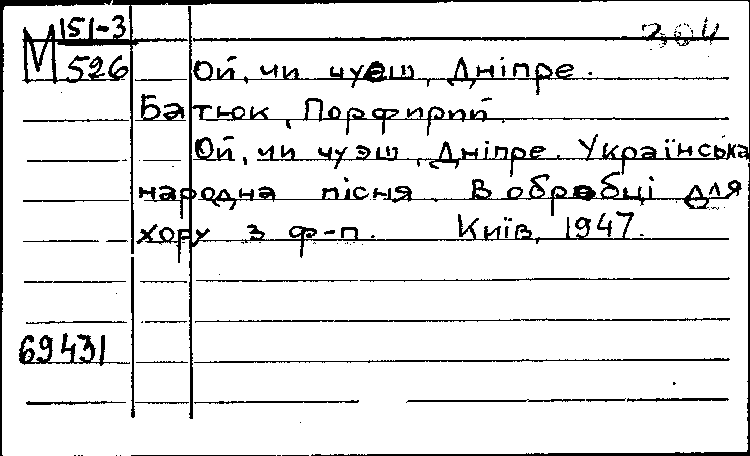 М 151-3
526
304
Ой, чи чуєш, Дніпре.
Батюк, Порфирий.
Ой, чи чуэш, Дніпре. Українська
народна пісня. В обробці для
хору з ф-п. Київ, 1947.
69431